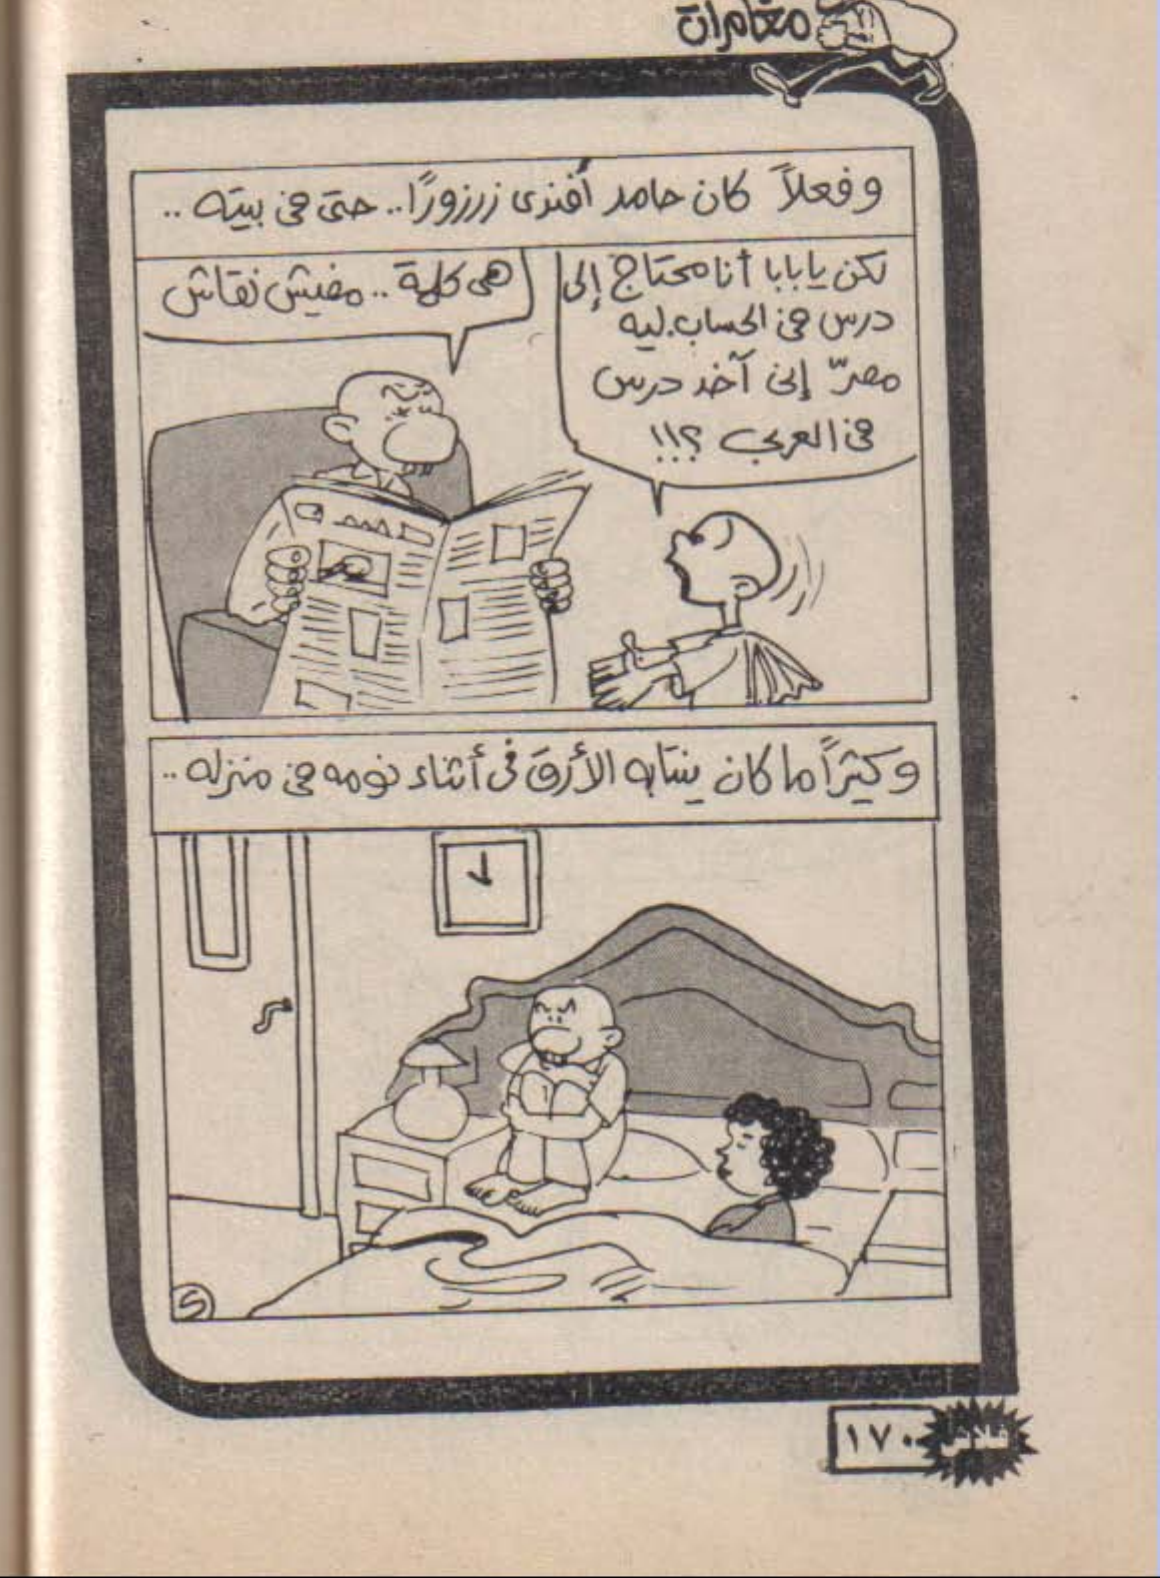 مغامرات
وفعلاً كان حامد أفندى زرزورًا.. حتى فى بيته ..
لكن يا بابا أنا محتاج إلى
درس فى الحساب. ليه
مصرّ إنى آخد درس
فى العربى ؟!!!
هى كلمة .. مفيش نقاش
وكثيراً ما كان ينتابه الأرق فى أثناء نومه فى منزله ..
١٧٠
فلاش